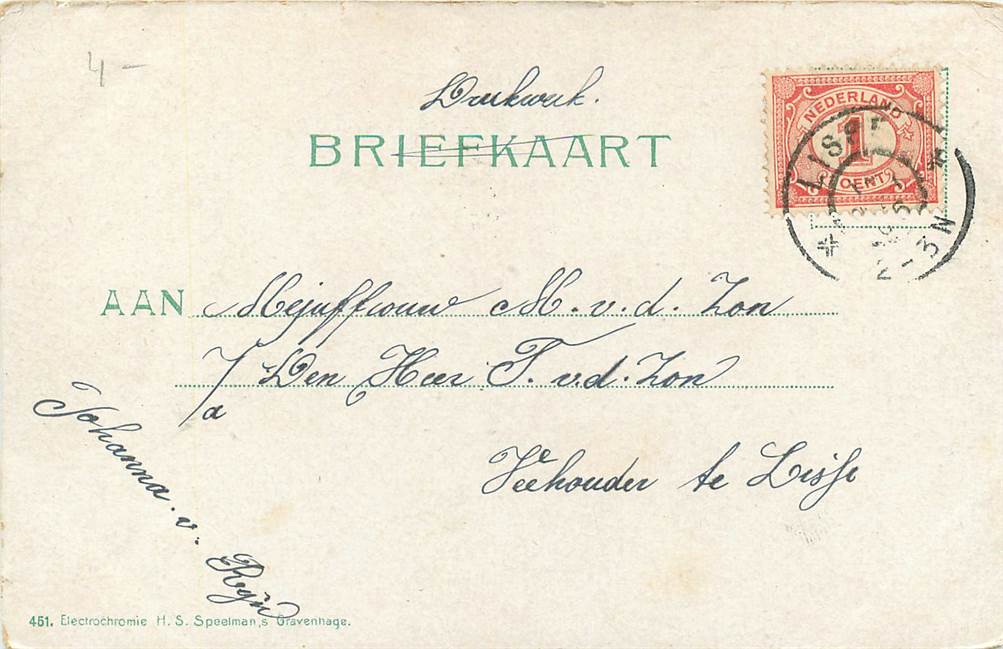 4-
Drukwerk.
BRIEFKAART
NEDERLAND
1
CENT
LISSE
2-3N
AAN Mejuffrouw M. v. d. Zon
Den Heer T. v. d. Zon
a
Veehouder te Lisse
Johanna. v. Reijn
451. Electrochromie H. S. Speelman,s Gravenhage.